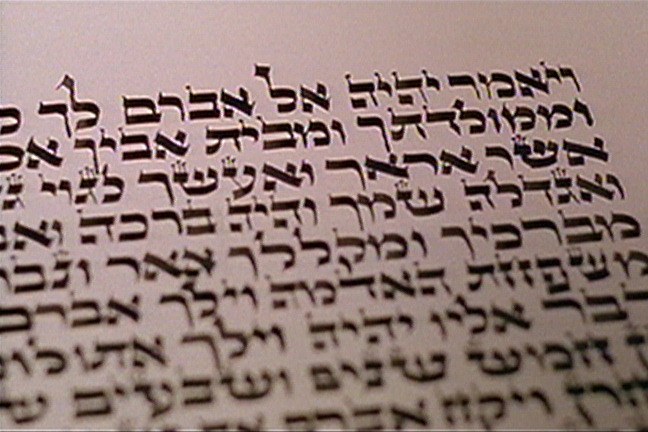 ויאמר יהיה אל אברם לך
וממולדתך ומבית אביך
אשר אראך ואעשך לגוי
ואגדלה שמך והיה ברכה
מברכיך ומקללך אאר
משפחת האדמה וילך אברם
דבר אליו יהיה וילך אתו
חמש שנים ושבעים
ויקח אברם